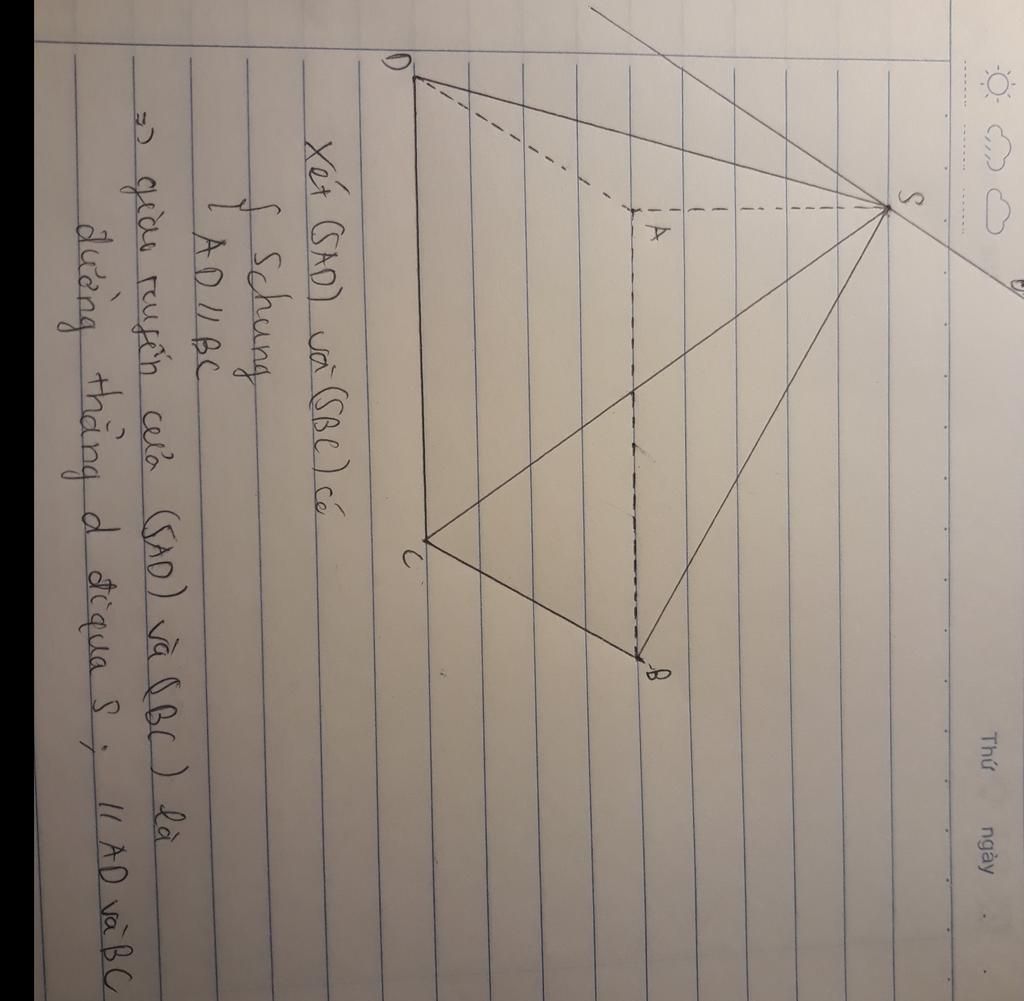 Thứ ngày
S
d
A
B
D
C
Xét (SAD) và (SBC) có
{ S chung
AD // BC
=> giao tuyến của (SAD) và (SBC) là
đường thẳng d đi qua S ; // AD và BC